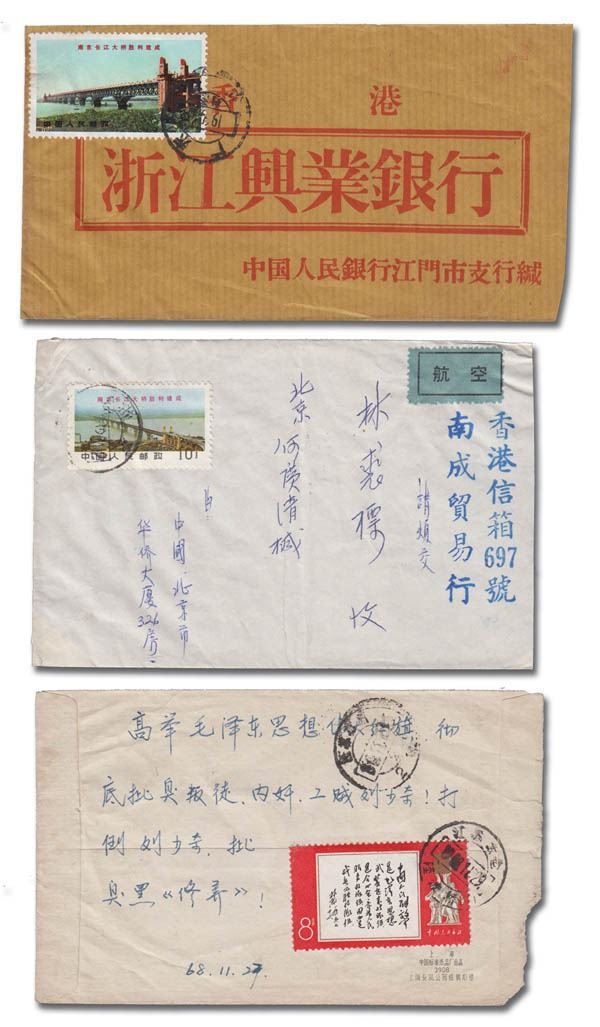 南京长江大桥胜利建成
中国人民邮政
香港
浙江興業銀行
中国人民銀行江門市支行緘
南京长江大桥胜利建成
中国人民邮政 10
航空
香港信箱697號
南成貿易行
請煩交
林 收
北京何 緘
中國北京市
华侨大厦326房
高举毛泽东思想伟大红旗 彻
底批臭叛徒、内奸、工贼刘少奇！打
倒刘少奇，批
臭黑《修养》！
68.11.27
8分
中国人民邮政
上海
3908